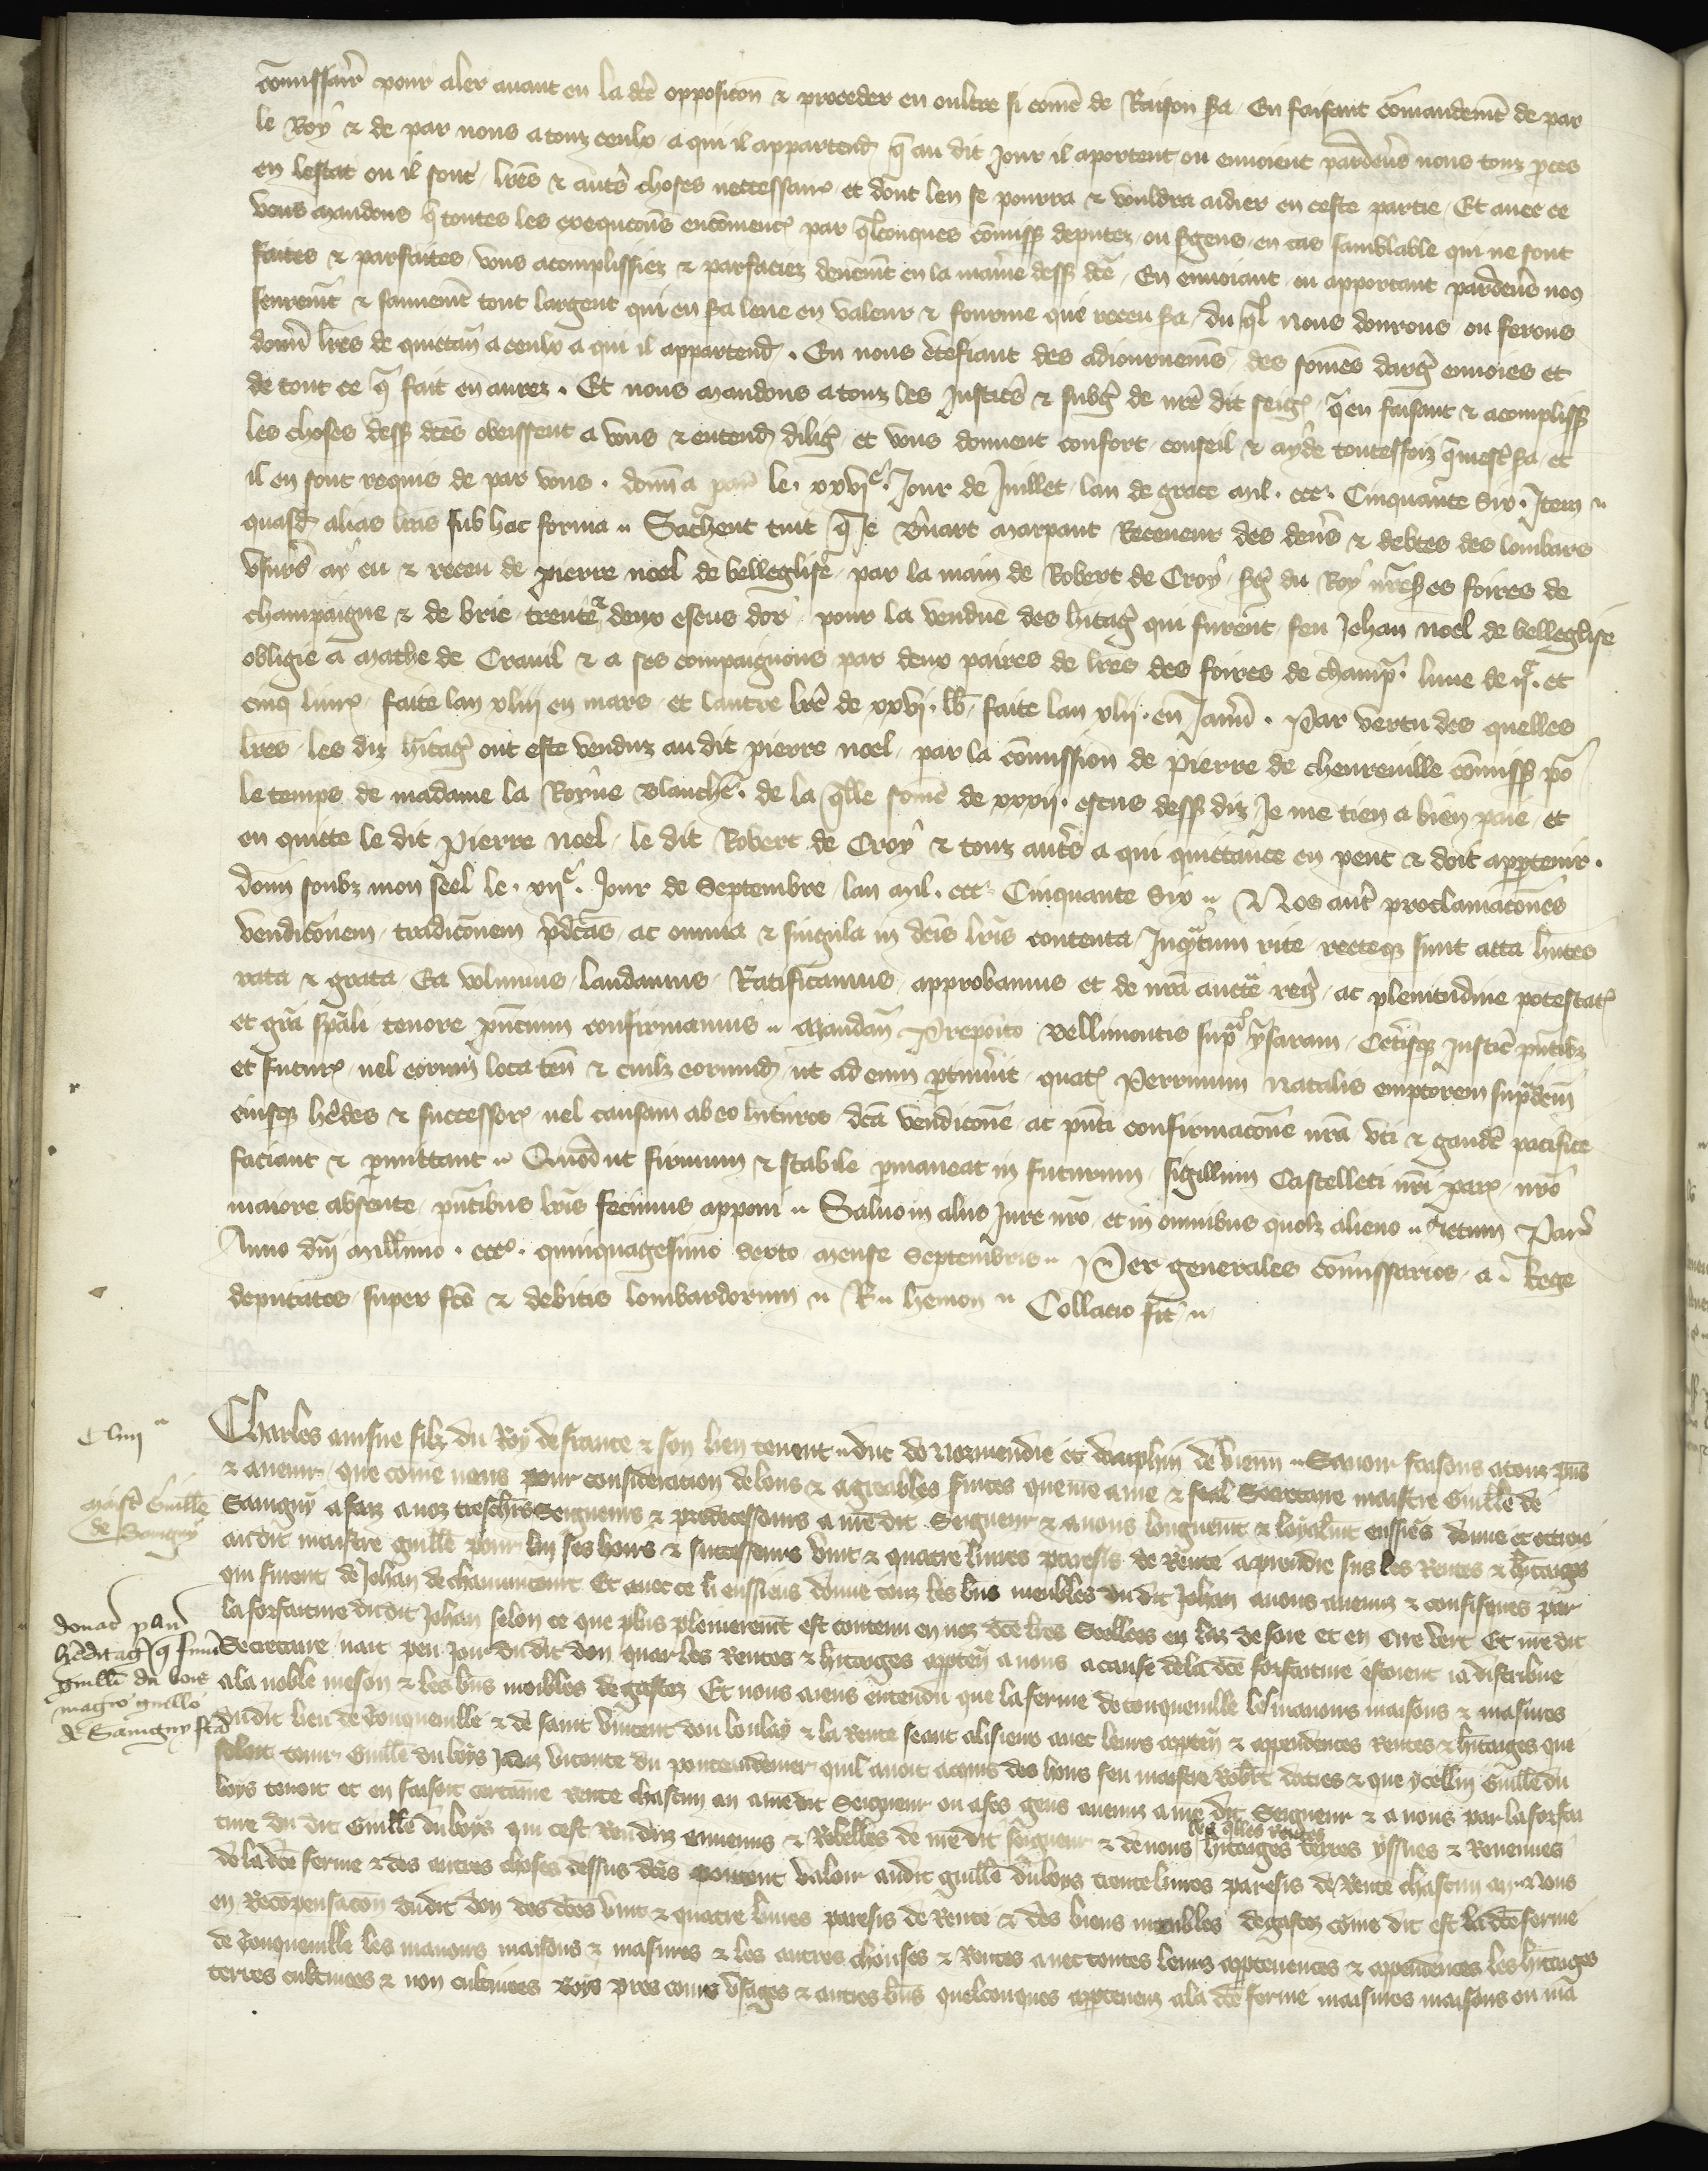 cōmissair̄ pour aler auant en la dc̄e opposicōn & proceder en oultre si com̄e de Raison s̄a En faisant cōmandem̄t de par
le Roy & de par nous a touz ceulx a qui il appartend̄ q̄ au dit Jour il aportent ou enuoient pardeu̅s nous touz p̄ces
en lestat ou il sont lr̄es & aut̄s choses neccessair̄ et dont len se pourra & vouldra aidier en ceste partie Et auec ce
vous mandons q̄ toutes les execucōns encōmenc̄ par q̄lconques cōmiss̄ deputez ou s̄gens en cas samblable qui ne sont
faites & parfaites vous acomplissiez & parfaciez deuem̄t en la man̄ie dess̄ dc̄e En enuoiant ou apportant pardeu̅s nos
seurem̄t & sauuem̄t tout largent qui en s̄a leue en valeur & fourme que receu s̄a du q̄l nous donrons ou ferons
donn̄ lr̄es de quictan̄ a ceulx a qui il appartend̄ . En nous c̄tefiant des adiournem̄s des som̄es darḡ enuoies et
de tout ce q̄ fait en aurez . Et nous mandons a touz les Justic̄s & subḡ de nr̄e dit seiḡ q̄ en faisant & acompliss̄
les choses dess̄ dc̄es obeissent a vous & entend̄ diliḡ et vous donnent confort conseil & ayde toutesfoiz q̄ mest̄ s̄a et
il en sont requis de par vous . donn̄ a par̄ le . xxvi.e Jour de Juillet lan de grace mil . ccc. Cinquante six . Item
quasd̄ alias lr̄as sub hac forma Sachent tuit q̄ Je b̄nart marpaut Receueur des deu̅s & debtes des lombars
vsur̄s ay eu & receu de pierre noel de belleglise par la main de Robert de Croy s̄g du Roy nr̄es es foires de
champaigne & de brie trente & deux escus dor pour la vendue des h̄itaḡ qui furent feu Jehan noel de belleglise
obligie a mathe de Crauil & a ses compaignons par deux paires de lr̄es des foires de champ̄ . lune de ij.c et
cinq liur̄ faite lan xliij en mars et lautre lr̄e de xxvi . lb̄ faite lan xlij . en Januī . Par vertu des quelles
lr̄es les diz h̄itaḡ ont este venduz au dit pierre noel par la cōmission de pierre de cheureuille cōmiss̄ po᷑
le temps de madame la Royne blanche . de la q̄lle som̄e de xxxij . escus dess̄ diz Je me tien a bien paie et
en quitte le dit Pierre noel le dit Robert de Croy & touz aut̄s a qui quittance en peut & doit app̄tenir .
donn̄ soubz mon seel le . xij.e Jour de Septembre lan mil . ccc Cinquante six Nos aut̄ proclamacōnes
vendicōnem tradicōnem p̄dc̄as ac omnia & singula in dc̄is lr̄is contenta Inq̄ntum rite recteq̄ sunt acta h̄ntes
rata & grata Ea volumus laudamus Ratificamus approbamus et de nr̄a auctt̄e reḡ ac plenitudine potestat̄
et gr̄a sp̄ali tenore p̄ncium confirmamus Mandam̄ Preposito bellimontis sup̄ ysaram Cet̄isq̄ Justic̄ p̄ntibz
et futur̄ uel eorum loca ten̄ & cuilz eorumd̄ ut ad eum p̄tinuīt quat̄ Perrinum natalis emptorem sup̄dcm̄
eiusq̄ h̄edes & successor̄ uel causam ab eo h̄ituros dc̄a vendicōne ac p̄nti confirmacōne nr̄a vti & gaud̄e pacifice
faciant & p̄mittant Quod ut firmum & stabile p̄maneat in futurum sigillum Castelleti nr̄i par̄ nr̄o
maiore absente p̄ntibus lr̄is fecimus apponi Saluo in aliis Jure nr̄o et in omnibus quolz alieno Actum Par̄
Anno dn̄i millīmo . ccc.o quinquagesimo sexto mense Septembris Per generales cōmissarios a . Rege
deputatos super fc̄o & debitis lombardorum R. hemon Collacio fit
Cliiij
Charles ainsne filz du Roy de france & son lieu tenent duc de Normendie et dauphin de viennē Sauoir faisons a touz p̄ns
& auenir que com̄e nous pour consideracion de bons & agreables s̄uices que nr̄e ame & feal Secretaire maistre Guill̄e de
Sauigny a faiz a noz treschr̄s Seigneurs & predecesseurs a nr̄e dit Seigneur & a nous longuem̄t & loyalm̄t eussiēs donne et ottroie
au dit maistre guill̄e pour lui ses hoirs & successeurs vint & quatre liures paresis de Rente a prendre sus les Rentes & h̄itages
qui furent de Johan de chaumtont Et auec ce li eussiens donne touz les biēs meubles du dit Johan a nous auenuz & confisques par
la forfaiture du dit Johan selon ce que plus pleinerem̄t est contenu en noz dc̄es lr̄es Seellees en laz de soie et en cire vert Et nr̄e dit
Secretaire nait peu Joir du dit don quar les Rentes & h̄itages appten̄ a nous a cause de la dc̄e forfaiture estoient ia distribue
a la noble meson & les biēs moibles degastez Et nous aiens entendu que la ferme de conqueuille les manoirs maisons & masures
dudit lieu de Conqueuille & de saint Vincent dou boulay & la Rente seant a lisieux auec leurs appten̄ & appendences Rentes & h̄itages que
soloit tenir Guill̄e du boys Jadiz viconte du ponteaudemer quil auoit acquis des hoirs feu maistre Rob̄t daties & que ycellui Guill̄e du
boys tenoit et en faisoit certaine rente chascun an a nr̄e dit Seigneur ou a ses gens auenuz a nr̄e dit Seigneur & a nous par la forfai
ture du dit Guill̄e du boys qui cest Renduz ennemis & Rebelles de nr̄e dit seigneur & de nous les q̄lles rentes h̄itages terres yssues & Reuenues
de la dc̄e ferme & des autres choses dessus dc̄es pouoient valoir audit guill̄e du boys trente liures paresis de Rente chascun an Nous
en Recōpensacōn du dit don des dc̄es vint & quatre liures paresis de Rente & des biens meubles degastez com̄e dit est la dc̄e ferme
de Conqueuille les manoirs maisons & masures & les autres choses & Rentes auec toutes leurs appptenences & appendences les h̄itages
terres cultiuees & non cultiuees boys prez cours vsages & autres biēs quelconques appteneuz a la dc̄e ferme masures maisons ou ma
maist̄ Guill̄e
de Sauigny
donac̄ plur̄
h̄editaḡ q̄ fuīt
guill̄i du bois
magr̄o guill̄o
de Sauigny fc̄a